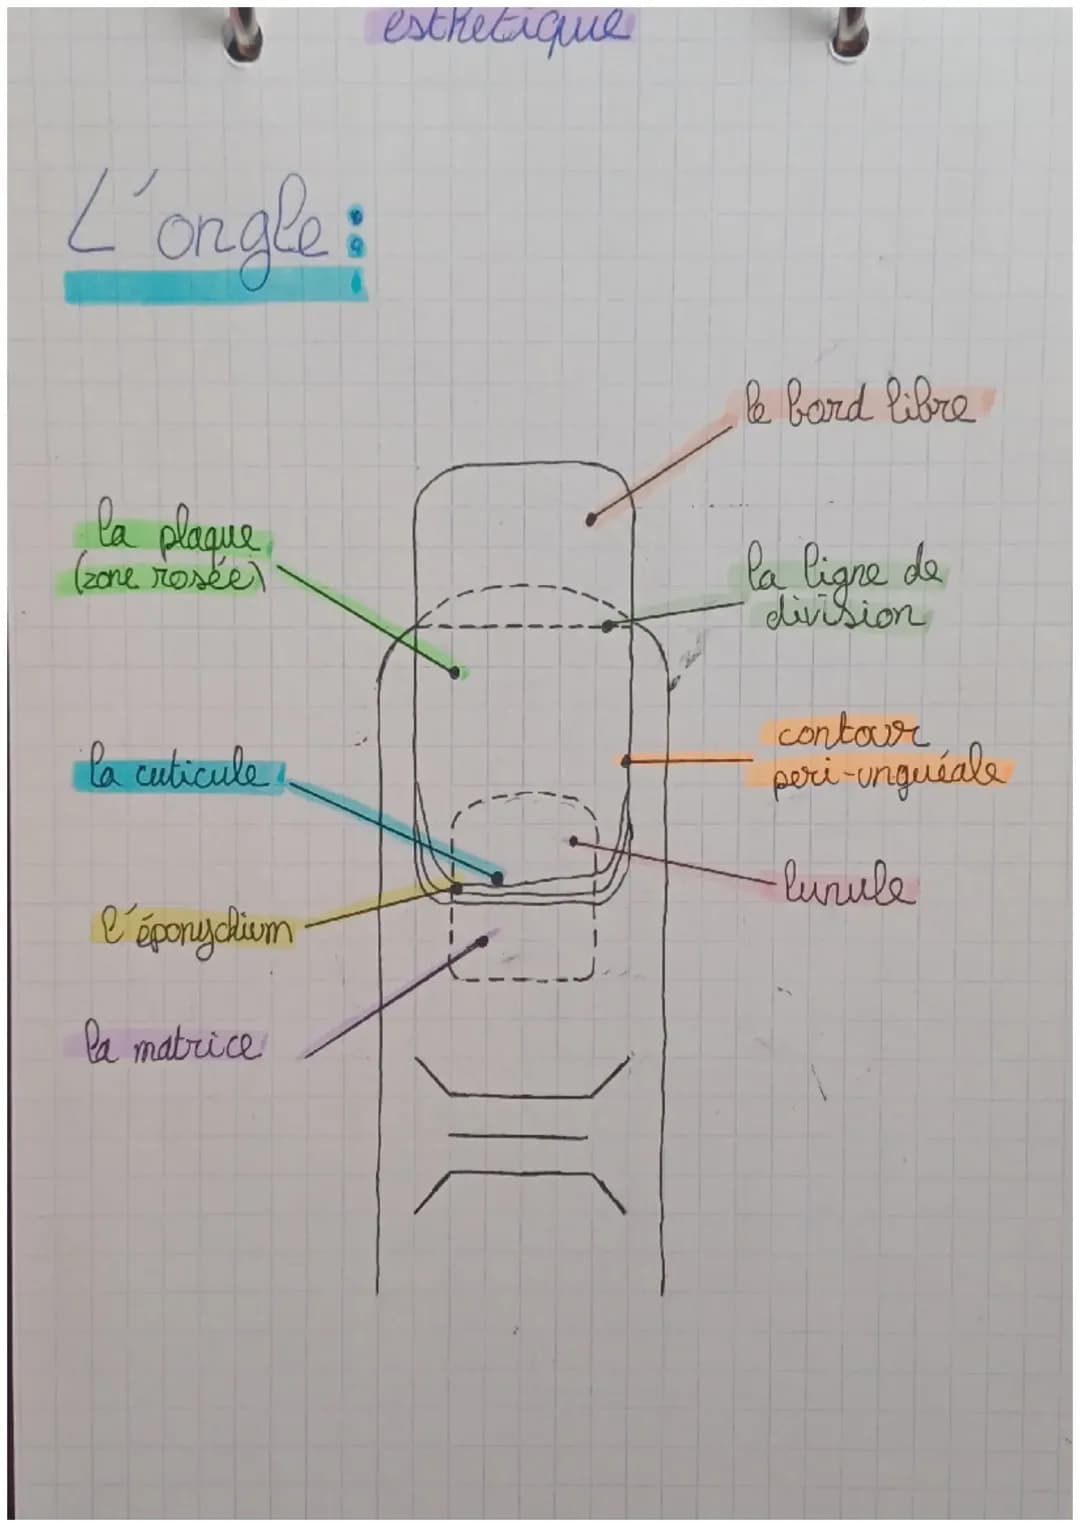 esthetique
L'ongle :
le bord libre
la plaque
(zone rosée)
la ligne de
division
contour
peri-unguéale
la cuticule
lunule
l'éponychium
la matrice